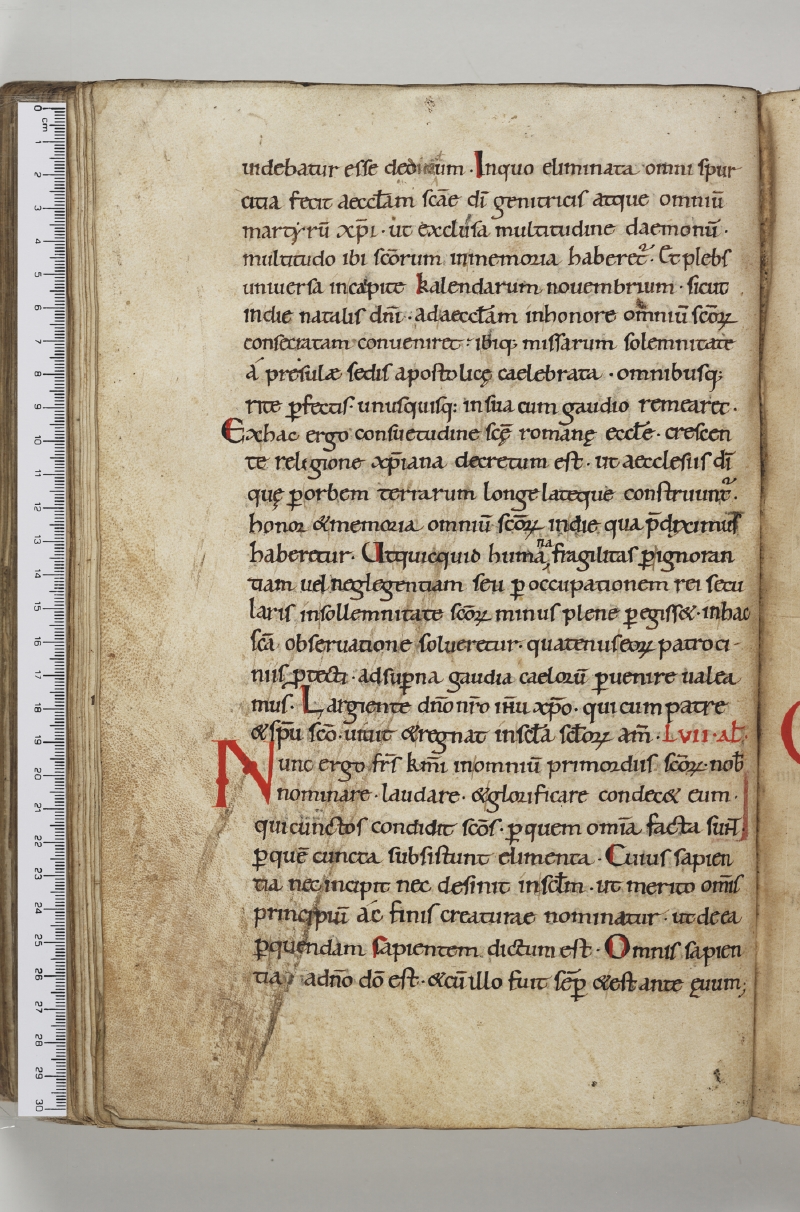 uidebatur esse dedicatum · Inquo eliminata omni spur
citia fecit aeccl̄am sc̄ae dī genitricis atque omniū
martyrū xp̄i · ut exclusa multitudine daemonū ·
multitudo ibi sc̄orum inmemoria haberet᷑ · Et plebs
uniuersa incapite kalendarum nouembrium · sicut
indie natalis dnī · adaeccl̄am inhonore omniū sc̄oꝝ
consecratam conueniret · ibiq; missarum solemnitate
a presulæ sedis apostolicę caelebrata · omnibusq;
rite ꝑfectis · unusquisq; insua cum gaudio remearet ·
Exhac ergo consuetudine scę̄ romanę eccl̄e · crescen
te religione xp̄iana decretum est · ut aecclesiis dī
quę ꝑorbem terrarum longe lateque construunt᷑ ·
honor &memoria omniū sc̄oꝝ indie qua p̄diximus
haberetur · Utquicquid humana fragilitas ꝑignoran
tiam uel neglegentiam seu ꝑoccupationem rei secu
laris insollemnitate sc̄oꝝ minus plene ꝑegiss& · inhac
sc̄a obseruatione solueretur · quatenus eoꝝ patroci-
niis ꝓtecti · adsupna gaudia caelorū ꝑuenire ualea
mus · Largiente dn̄o nr̄o ih̄u xp̄o · qui cum patre
&sp̄u sc̄o · uiuit &regnat insc̄la sc̄loꝝ am̄ · LVII · ab̄
Nunc ergo fr̄s km̄i inomniū primordiis sc̄oꝝ · nob̄
nominare · laudare · &glorificare condec& eum ·
qui cunctos condidit sc̄os · ꝑquem omīa facta sun̄t;
ꝑquē cuncta subsistunt elimenta · Cuius sapien
tia nec incipit nec desinit inscl̄m · ut merito om̄is
principiū ac finis creaturae nominatur · ut de ea
ꝑquendam sapientem dictum est · Omnis sapien
tia adn̄o dō est · &cū illo fuit sēꝑ &est ante ęuum;